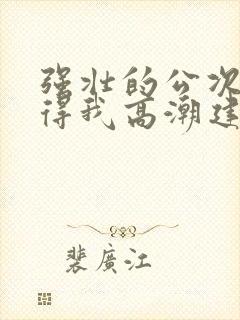 强壮的公次
得我高潮连
裴廣江